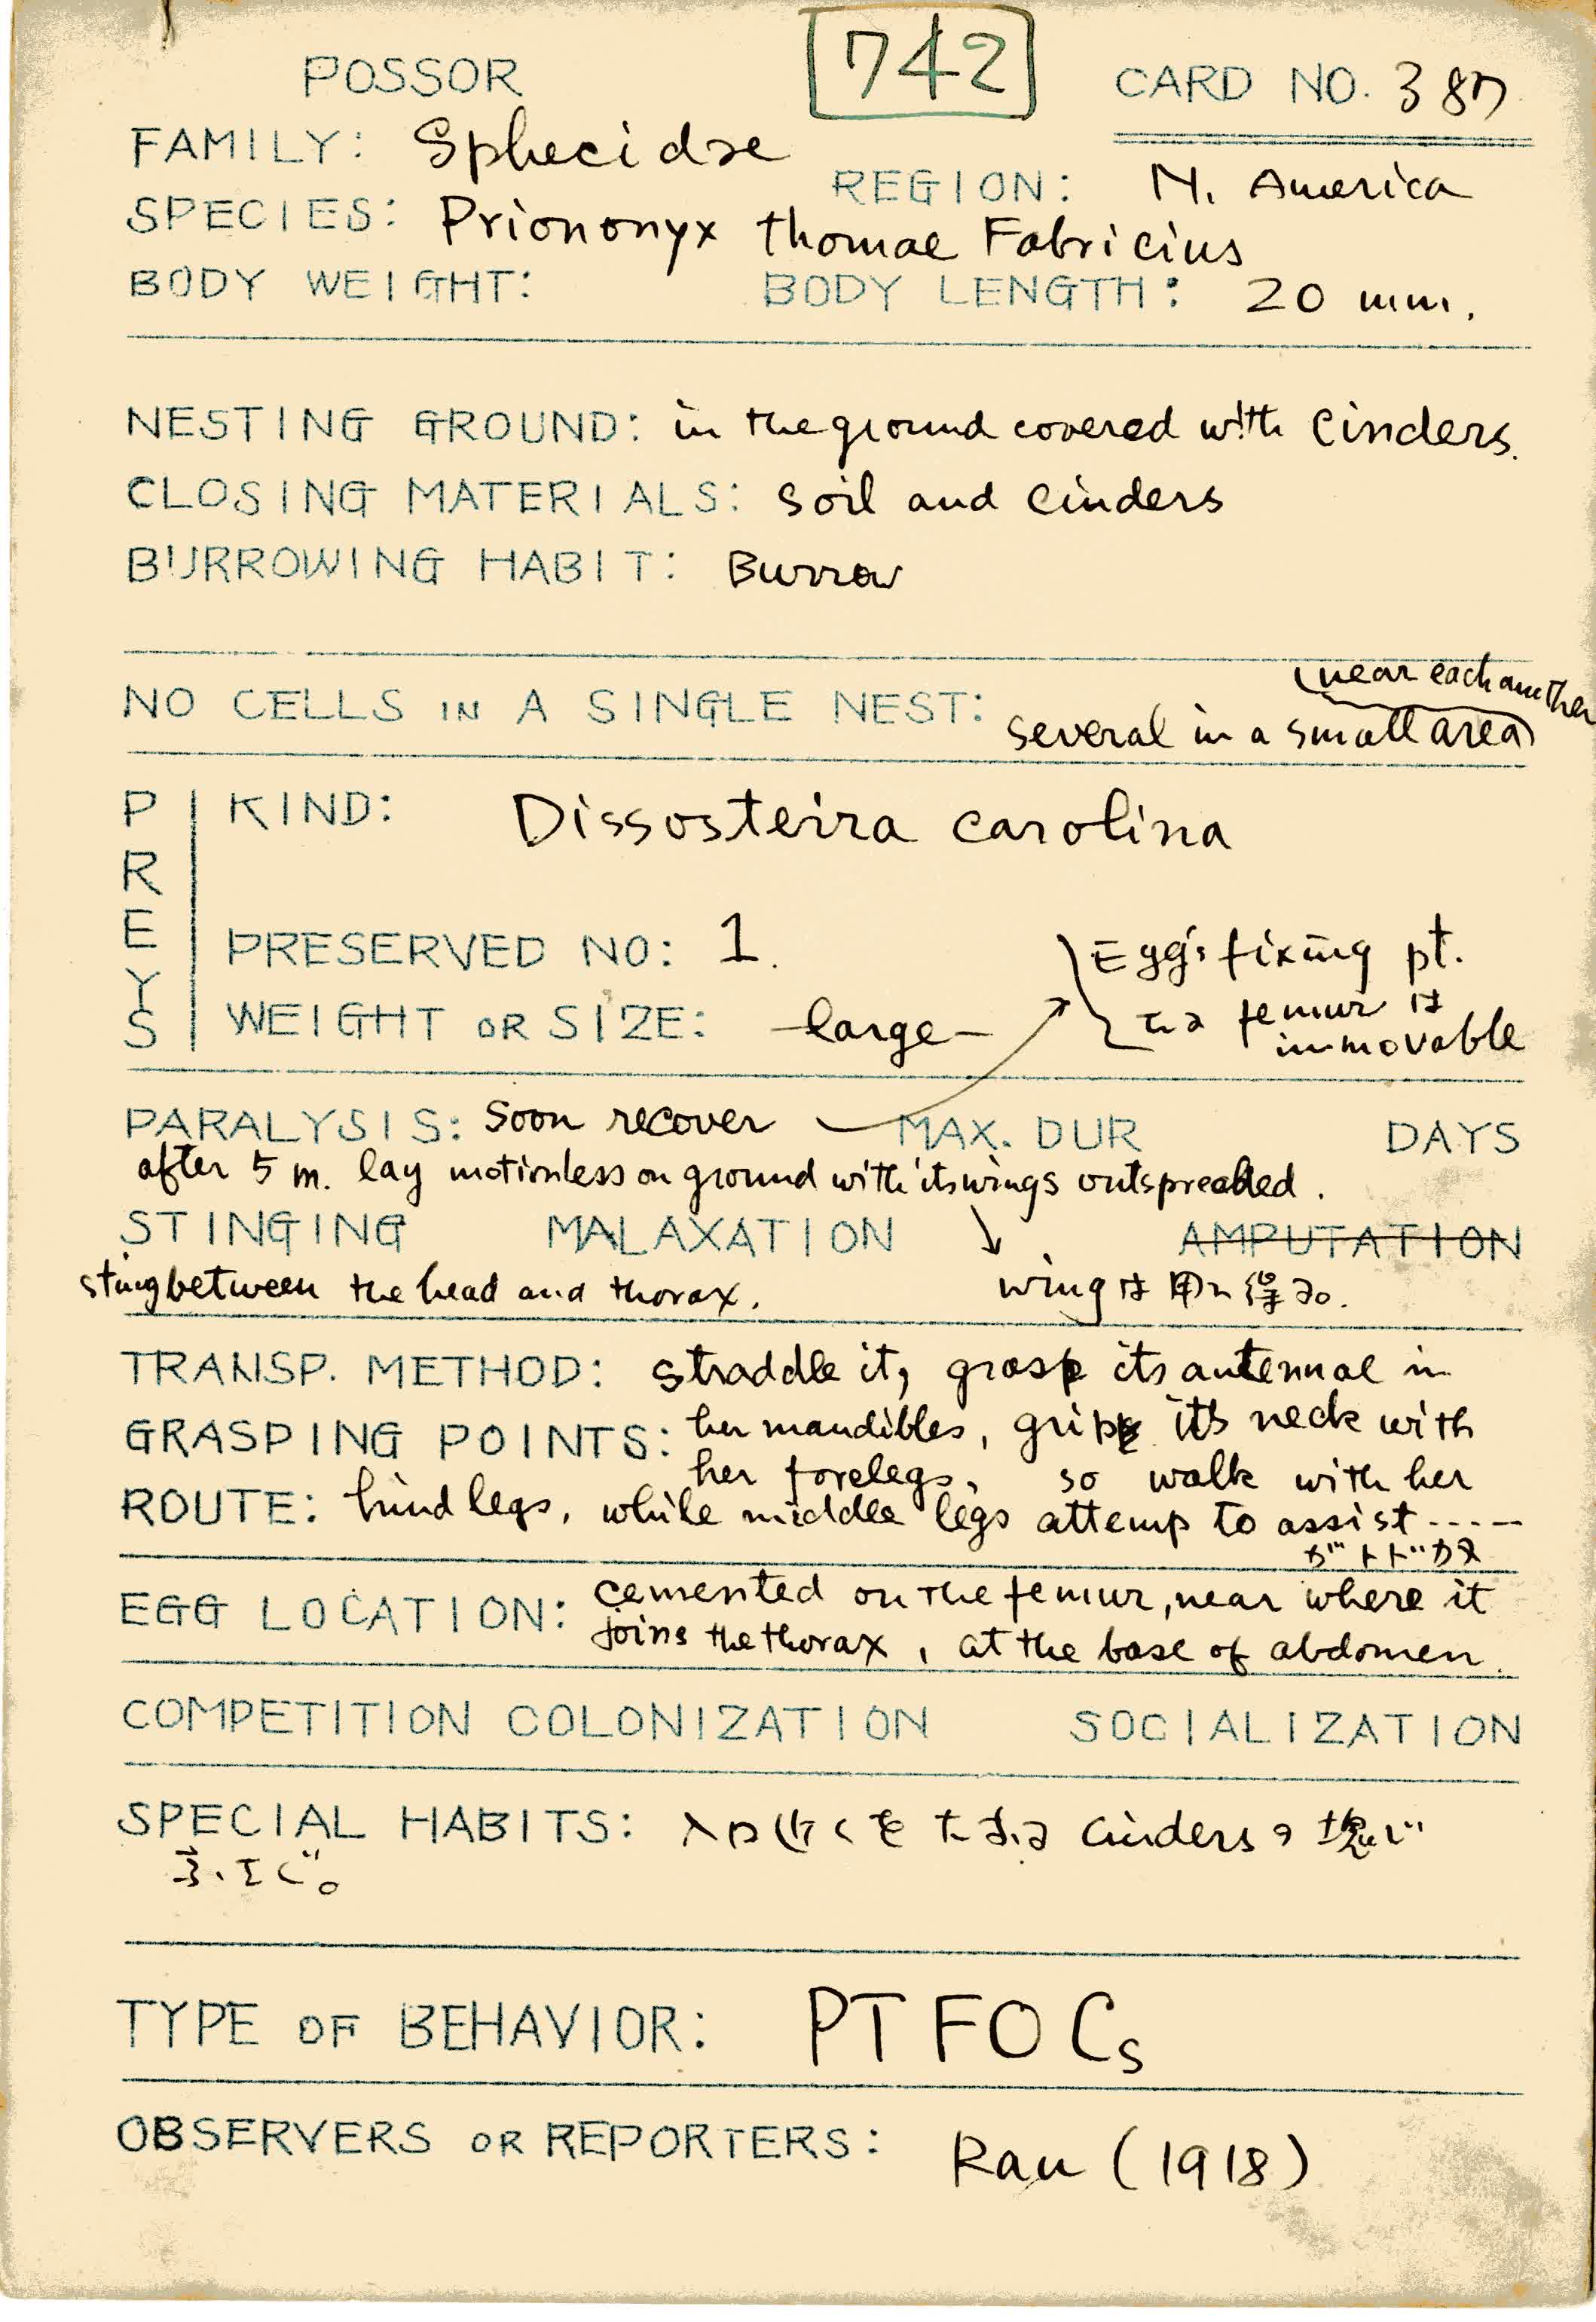 742
POSSOR CARD NO. 387
FAMILY: Sphecidae
REGION: N. America
SPECIES: Prionônyx thomae Fabricius
BODY WEIGHT: BODY LENGTH: 20 mm.
NESTING GROUND: in the ground covered with cinders.
CLOSING MATERIALS: soil and cinders
BURROWING HABIT: Burrow
(near each another
NO CELLS IN A SINGLE NEST: several in a small area)
PREYS
KIND: Dissosteira carolina
PRESERVED NO: 1.
Egg's fixing pt.
WEIGHT OR SIZE: large
たる femur は
immovable
PARALYSIS: Soon recover MAX. DUR DAYS
after 5 m. lay motionless on ground with its wings outspreaded.
STINGING MALAXATION AMPUTATION
sting between the head and thorax. wing は 用ゐ得る。
TRANSP. METHOD: straddle it, grasp its antennae in
GRASPING POINTS: her mandibles, grip its neck with
her forelegs, so walk with her
ROUTE: hind legs, while middle legs attemp to assist----
がトドカヌ
EGG LOCATION: cemented on the femur, near where it
joins the thorax, at the base of abdomen.
COMPETITION COLONIZATION SOCIALIZATION
SPECIAL HABITS: 入口近くを大なる cinders の塊で
ふさぐ。
TYPE OF BEHAVIOR: PTFOCs
OBSERVERS OR REPORTERS: Rau (1918)